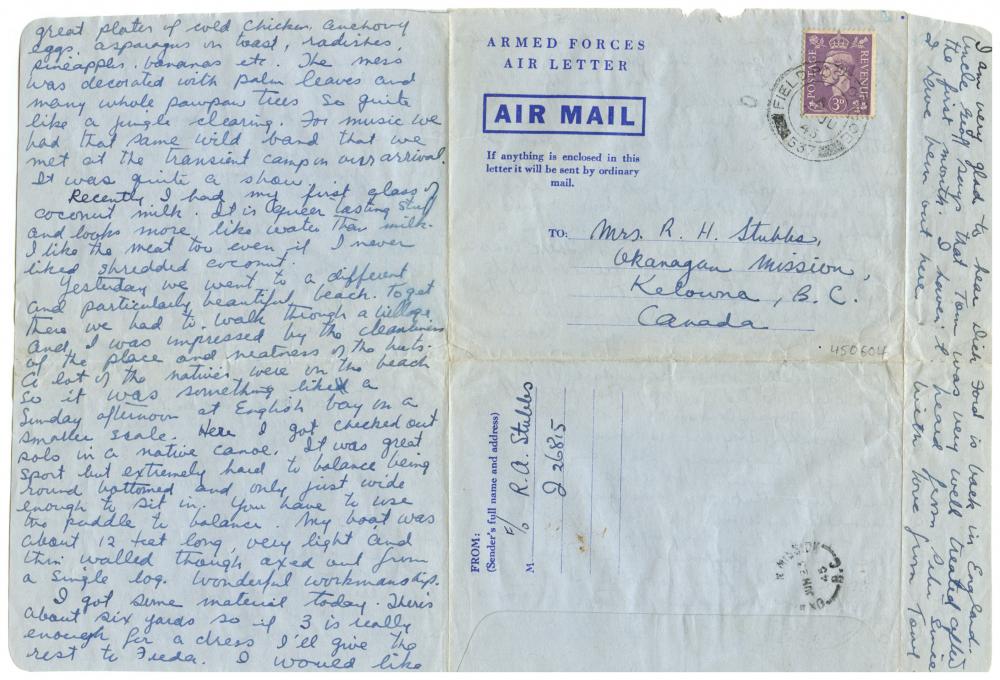 great plates of cold chicken, anchovy
eggs, asparagus on toast, radishes,
pineapples, bananas etc. The mess
was decorated with palm leaves and
many whole pawpaw trees so quite
like a jungle clearing. For music we
had that same wild band that we
met at the transient camp on our arrival.
It was quite a show.
Recently I had my first glass of
coconut milk. It is queer tasting stuff
and looks more like water than milk.
I like the meat too even if I never
liked shredded coconut.
Yesterday we went to a different
and particularly beautiful beach. To get
there we had to walk through a village
and I was impressed by the cleanliness
of the place and neatness of the huts.
A lot of the natives were on the beach
so it was something like a
Sunday afternoon at English bay on a
smaller scale. Here I got checked out
solo in a native canoe. It was great
sport but extremely hard to balance being
round bottomed and only just wide
enough to sit in. You have to use
the paddle to balance. My boat was
about 12 feet long, very light and
thin walled though axed out from
a single log. Wonderful workmanship.
I got some material today. There's
about six yards so if 3 is really
enough for a dress I'll give the
rest to Freda. I would like
ARMED FORCES
AIR LETTER
AIR MAIL
If anything is enclosed in this
letter it will be sent by ordinary
mail.
POSTAGE REVENUE
3D
FIELD
45
TO: Mrs. R. H. Stubbs,
Okanagan Mission,
Kelowna, B. C.
Canada
450604
FROM:
(Sender's full name and address)
M F/O R. A. Stubbs
J 26815
MISSION
45
B.C.
I am very glad to hear Dick Ford is back in England.
Uncle says that Tom was very well treated after
the first month. I haven't heard from since
I have been out here.
With love from